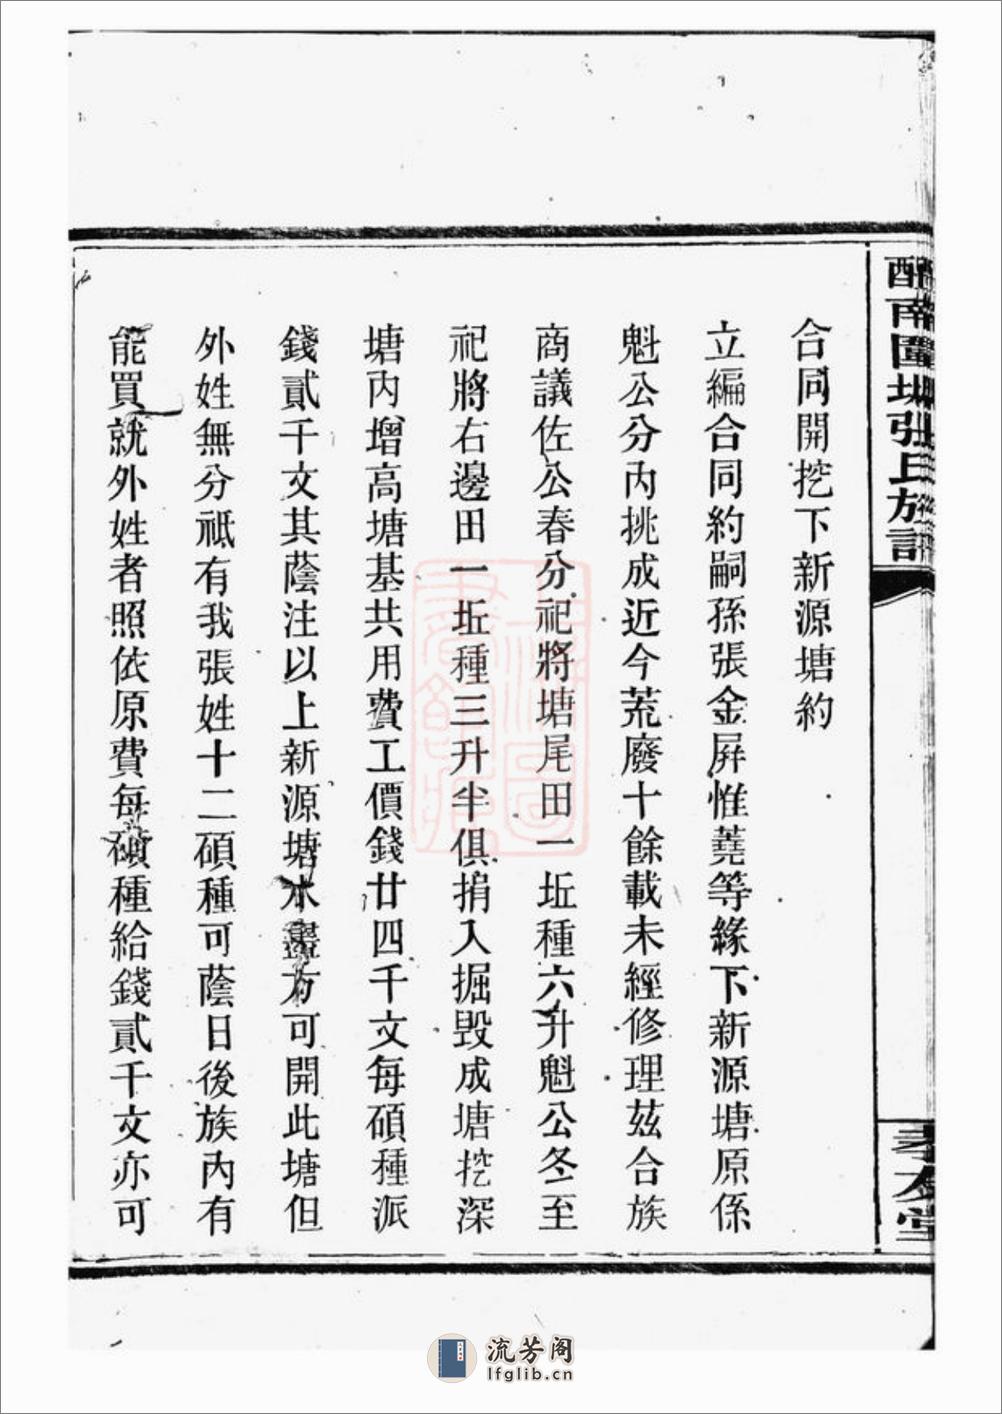 醴南圍壪張氏族譜
孝友堂
合同開挖下新源塘約
立編合同約嗣孫張金屏惟蕘等緣下新源塘原係
魁公分內挑成近今荒廢十餘載未經修理茲合族
商議佐公春分祀將塘尾田一坵種六升魁公冬至
祀將右邊田一坵種三升半俱捐入掘毀成塘挖深
塘內增高塘基共用費工價錢廿四千文每碩種派
錢貳千文其蔭注以上新源塘水盡方可開此塘但
外姓無分祗有我張姓十二碩種可蔭日後族內有
能買就外姓者照依原費每碩種給錢貳千文亦可
流芳阁
lfglib.cn